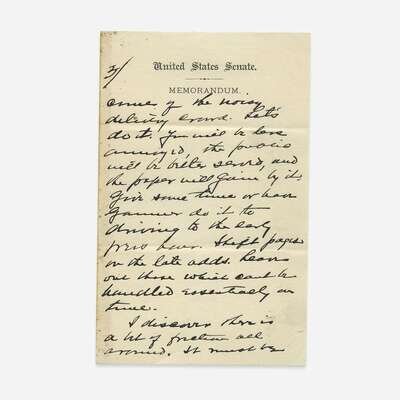 3/
United States Senate.
MEMORANDUM.
of the noisy
crowd. Let's
do it. You will be less
annoyed, the public
will be better served, and
the paper will gain by it.
Give some time or have
do it to
driving to the early
press hour. Shift pages
on the late adds. Leave
out those which can't be
handled essentially on
time.
I discover there is
a lot of friction all
around. It must be